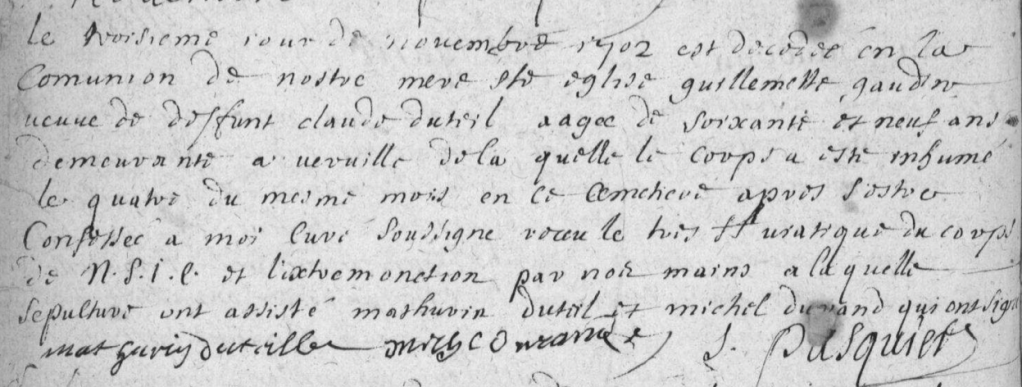 le troisieme iour de novembre 1702 est decedee en la
Comunion de nostre mere ste eglise guillemette gaudin
veuve de deffunt claude duteil aagee de soixante et neuf ans
demeurante a verville de la quelle le corps a esté inhumé
le quatre du mesme mois en ce cemetiere apres s'estre
Confessee a moi Curé soussigne receu le tres st viatique du corps
de N. S. I. C. et l'extremonction par nos mains a laquelle
sepulture ont assisté mathurin duteil et michel durand qui ont signé
mathurin duteille michel durand J. Pasquier